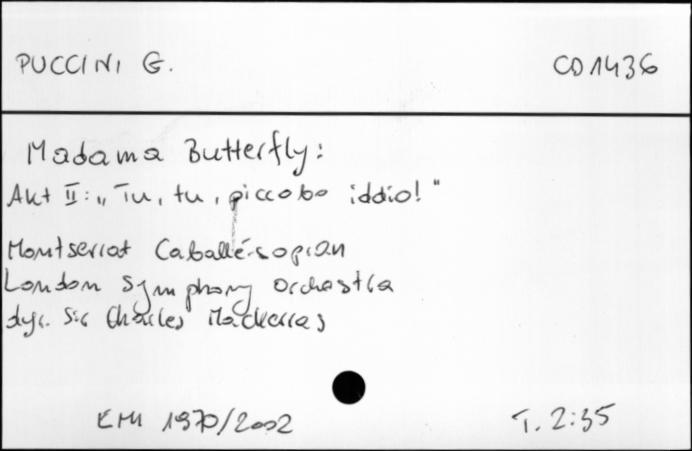 PUCCINI G. CD 1436
Madama Butterfly:
Akt II: „Tu, tu, piccolo iddio!"
Montserrat Caballé-sopran
London Symphony Orchestra
dyr. Sir Charles Mackerras
EMI 1970/2002 T. 2:35